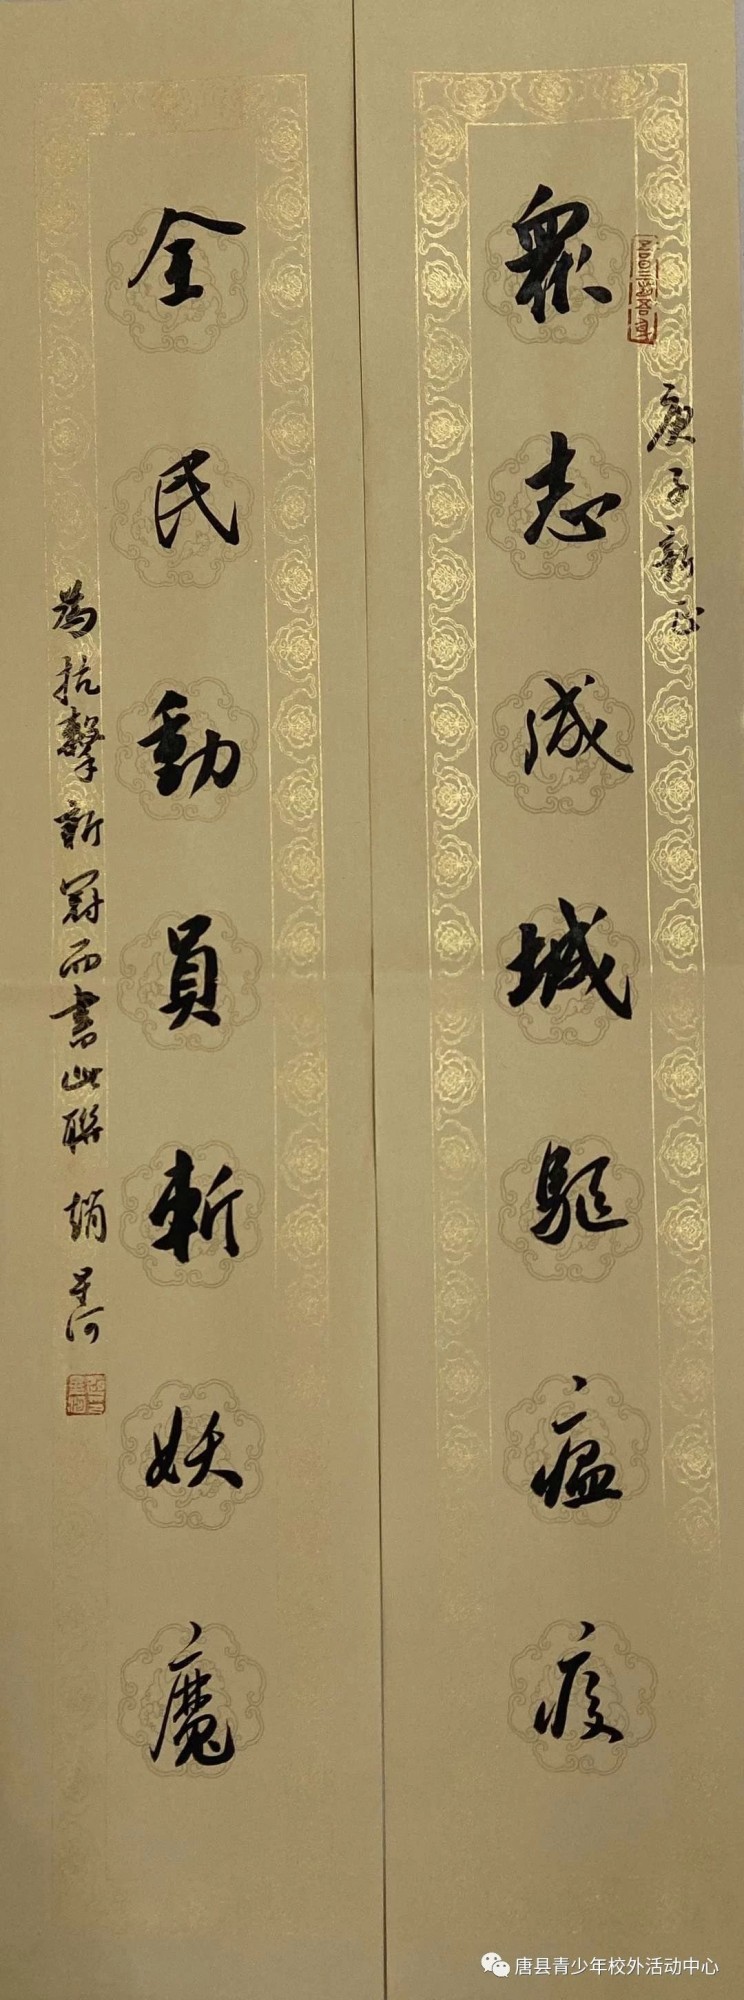 庚子新正
眾志成城驅瘟疫
全民動員斬妖魔
為抗擊新冠而書此聯
唐县青少年校外活动中心